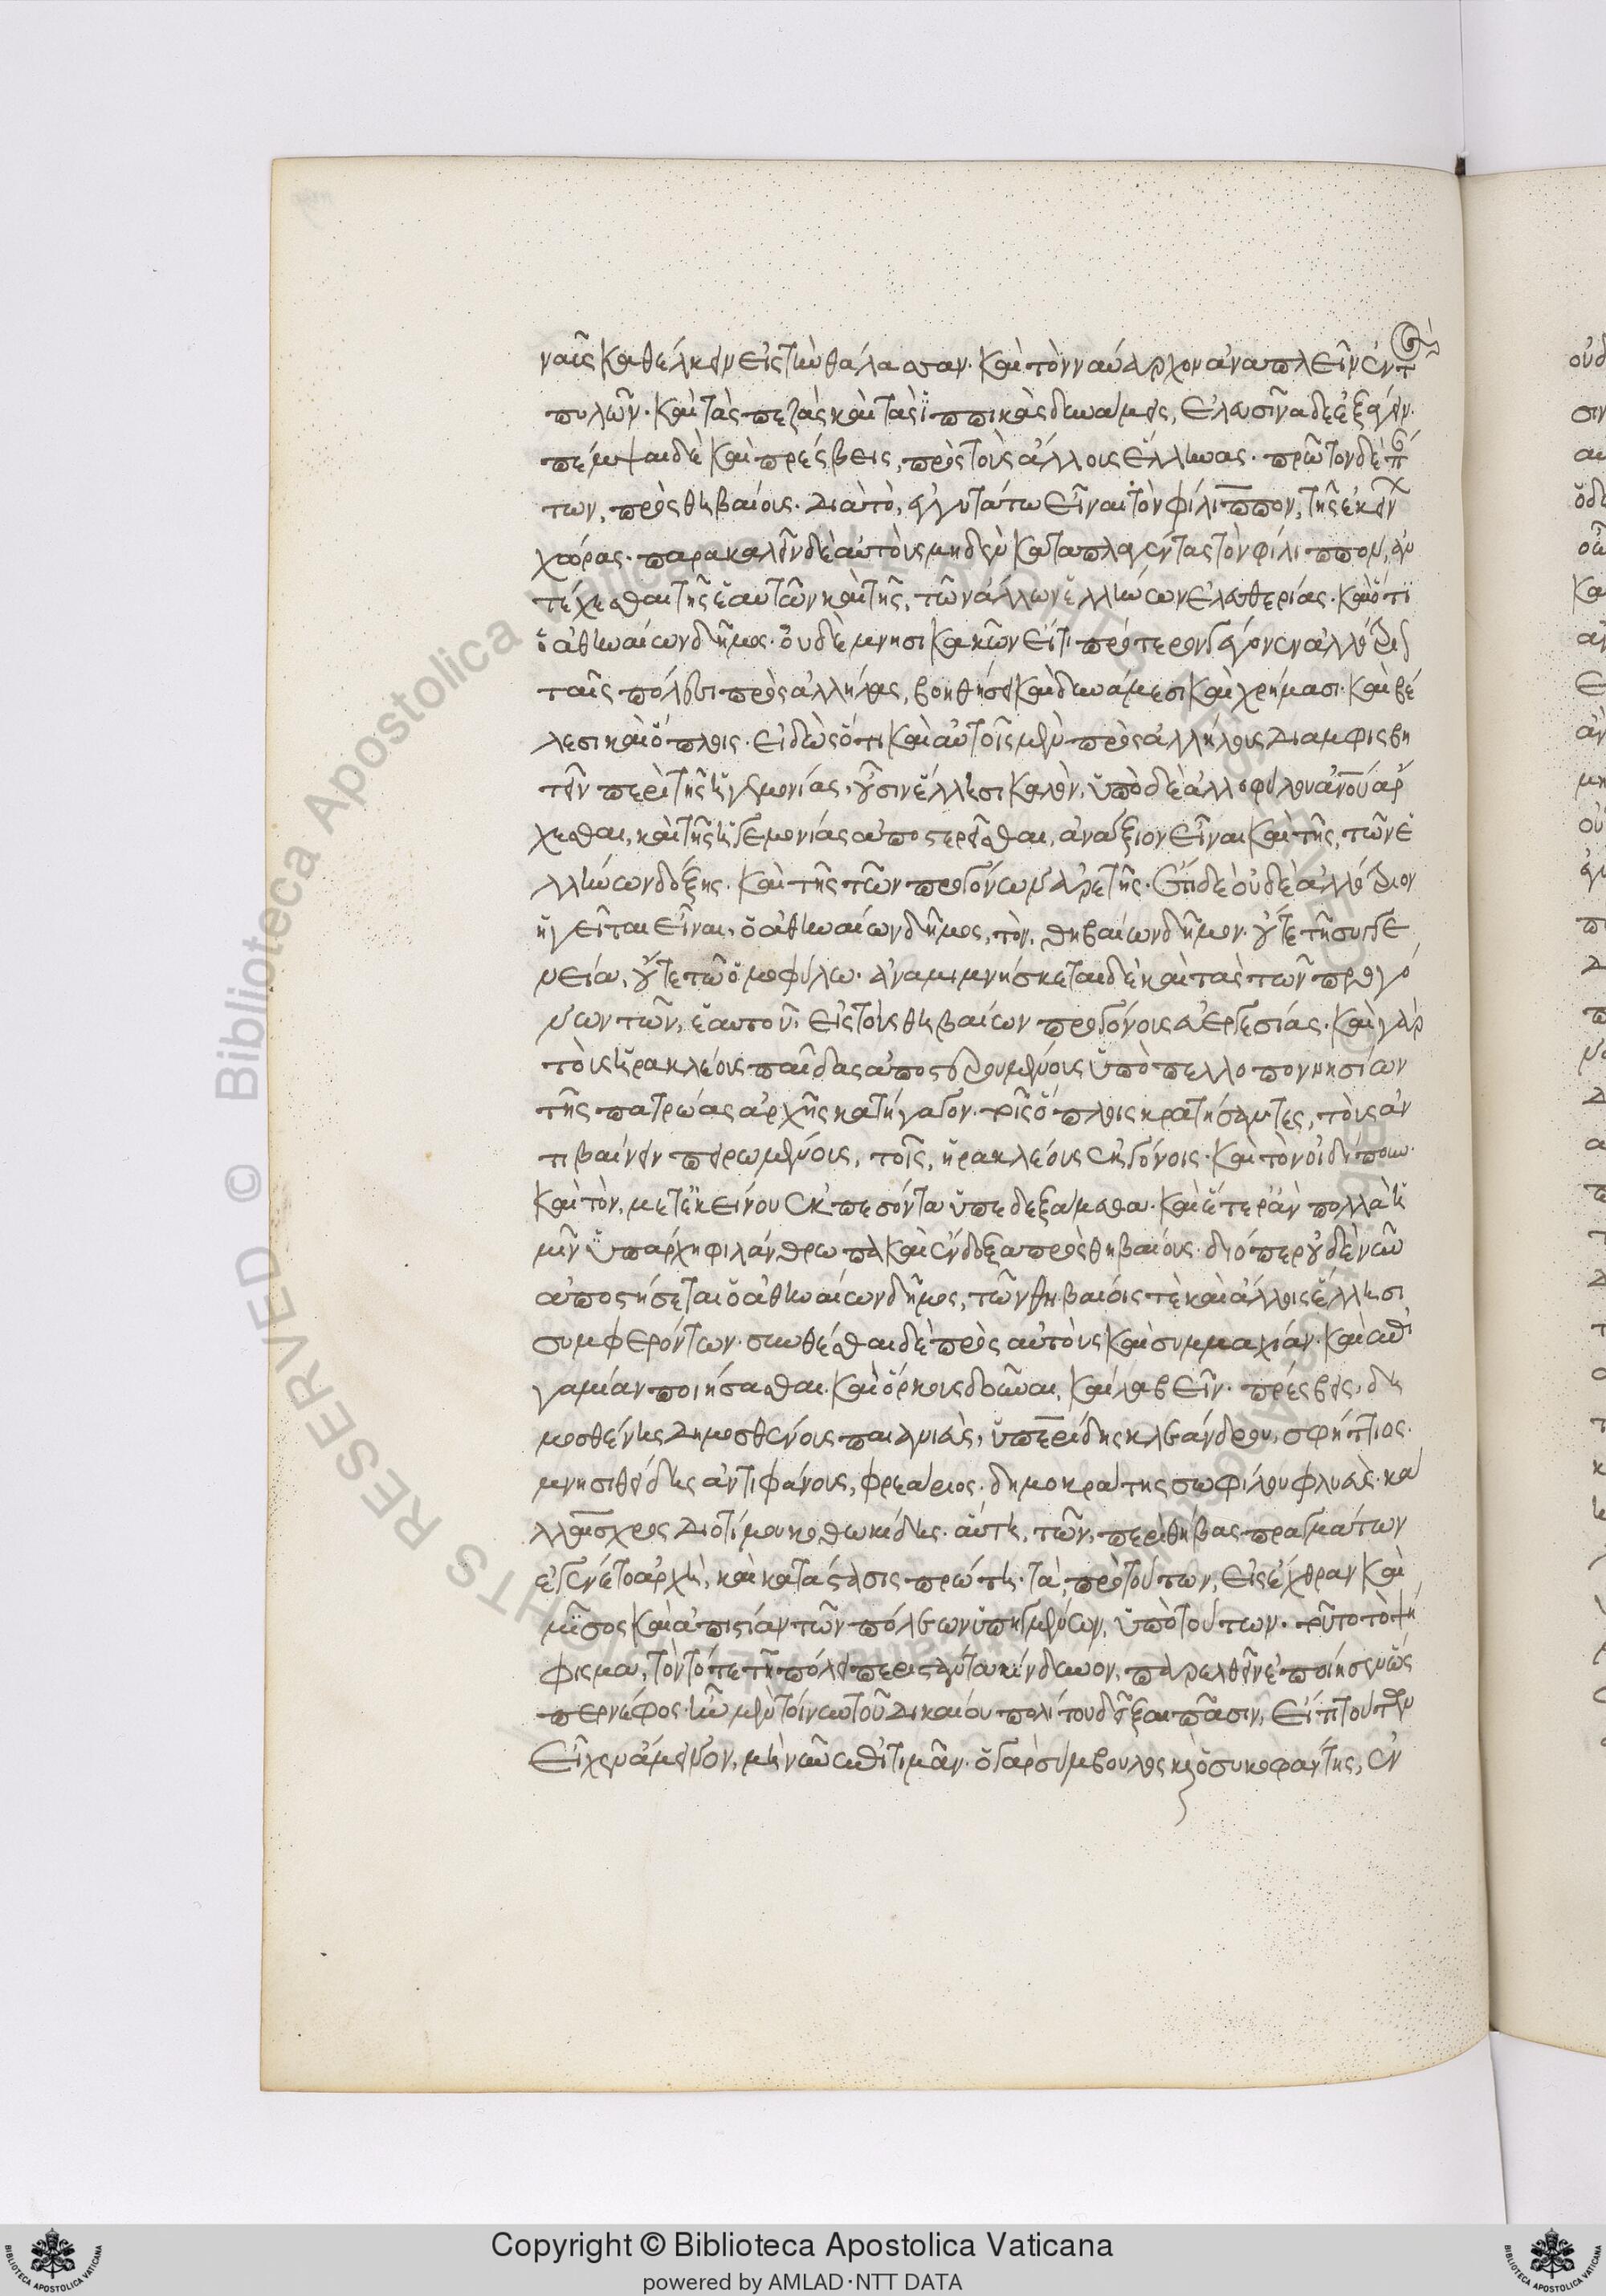 ναῦς καθέλκειν εἰς τὴν θάλασσαν· καὶ τὸν ναύαρχον ἀναπλεῖν ἐντὸς
πυλῶν· καὶ τὰς πεζὰς καὶ τὰς ἱππικὰς δυνάμεις, ἐλευσῖνα δὲ ἐξάγειν·
πέμψαι δὲ καὶ πρέσβεις, πρὸς τοὺς ἄλλους ἕλληνας· πρῶτον δὲ
των, πρὸς θηβαίους· διὰ τὸ, ἐγγυτάτω εἶναι τὸν φίλιππον, τῆς ἐκείνων
χώρας· παρακαλεῖν δὲ αὐτοὺς μηδὲν καταπλαγέντας τὸν φίλιππον, ἀν
τέχεσθαι τῆς ἑαυτῶν καὶ τῆς, τῶν ἄλλων ἑλλήνων ἐλευθερίας· καὶ ὅτι
ὁ ἀθηναίων δῆμος· οὐδὲ μνησικακῶν εἴ τι πρότερον γέγονεν ἀλλότριον
ταῖς πόλεσι πρὸς ἀλλήλας, βοηθήσει καὶ δυνάμεσι καὶ χρήμασι· καὶ βέ
λεσι καὶ ὅπλοις· εἰδὼς ὅτι καὶ αὐτοῖς μὲν πρὸς ἀλλήλους διαμφισβη
τεῖν περὶ τῆς ἡγεμονίας, οὖσιν ἕλλησι καλὸν, ὑπὸ δὲ ἀλλοφύλου ἀνοῦ ἄρ
χεσθαι, καὶ τῆς ἡγεμονίας ἀποστερεῖσθαι, ἀνάξιον εἶναι καὶ τῆς, τῶν ἑ
λλήνων δόξης· καὶ τῆς τῶν προγόνων ἀρετῆς· ἔτι δὲ οὐδὲ ἀλλότριον
ἡγεῖται εἶναι, ὁ ἀθηναίων δῆμος, τὸν, θηβαίων δῆμον· οὔτε τῆ συγγε
νεία, οὔτε τῶ ὁμοφύλω· ἀναμιμνήσκεται δὲ καὶ τὰς τῶν προγό
νων τῶν, ἑαυτοῦ, εἰς τοὺς θηβαίων προγόνους εὐεργεσίας· καὶ γὰρ
τοὺς ἡρακλέους παῖδας ἀποστερουμένους ὑπὸ πελλοποννησίων
τῆς πατρώας ἀρχῆς κατήγαγον· τοῖς ὅπλοις κρατήσαντες, τοὺς ἀν
τιβαίνειν πειρωμένους, τοῖς, ἡρακλέους ἐκγόνοις· καὶ τὸν οἰδίπουν·
καὶ τὸν, μετ' ἐκείνου ἐκπεσόντα ὑπεδεξάμεθα· καὶ ἕτερ' ἂν πολλὰ ἡ
μῖν ὑπάρχη φιλάνθρωπα καὶ ἔνδοξα πρὸς θηβαίους· διόπερ οὐδὲ νῦν
ἀποστήσεται ὁ ἀθηναίων δῆμος, τῶν θηβαίοις τὲ καὶ ἄλλοις ἕλλησι
συμφερόντων· συνθέσθαι δὲ πρὸς αὐτοὺς καὶ συμμαχίαν· καὶ ἐπι
γαμίαν ποιήσασθαι· καὶ ὅρκους δοῦναι, καὶ λαβεῖν· πρέσβεις, δη
μοσθένης δημοσθένους παιανιεὺς, ὑπερείδης κλεάνδρου, σφήττιος·
μνησιθείδης ἀντιφάνους, φρεάριος· δημοκράτης σωφίλου φλυεὺς· κά
λλαισχρος διοτίμου κοθωκίδης· αὕτη, τῶν, περὶ θήβας πραγμάτων
ἐγένετο ἀρχὴ, καὶ κατάστασις πρώτη· τὰ, πρὸ τούτων, εἰς ἔχθραν καὶ
μῖσος καὶ ἀπιστίαν τῶν πόλεων ὑπηγμένων, ὑπὸ τούτων· τοῦτο τὸ ψή
φισμα, τὸν τότε τῆ πόλει περιστάντα κίνδυνον, παρελθεῖν ἐποίησεν ὥς
περ νέφος· ἦν μὲν τοίνυν τοῦ δικαίου πολίτου δεῖξαι πᾶσιν, εἴ τι τούτων
εἶχεν ἄμεινον, μὴ νῦν ἐπιτιμᾶν· ὁ γὰρ σύμβουλος καὶ ὁ συκοφάντης, ἐν